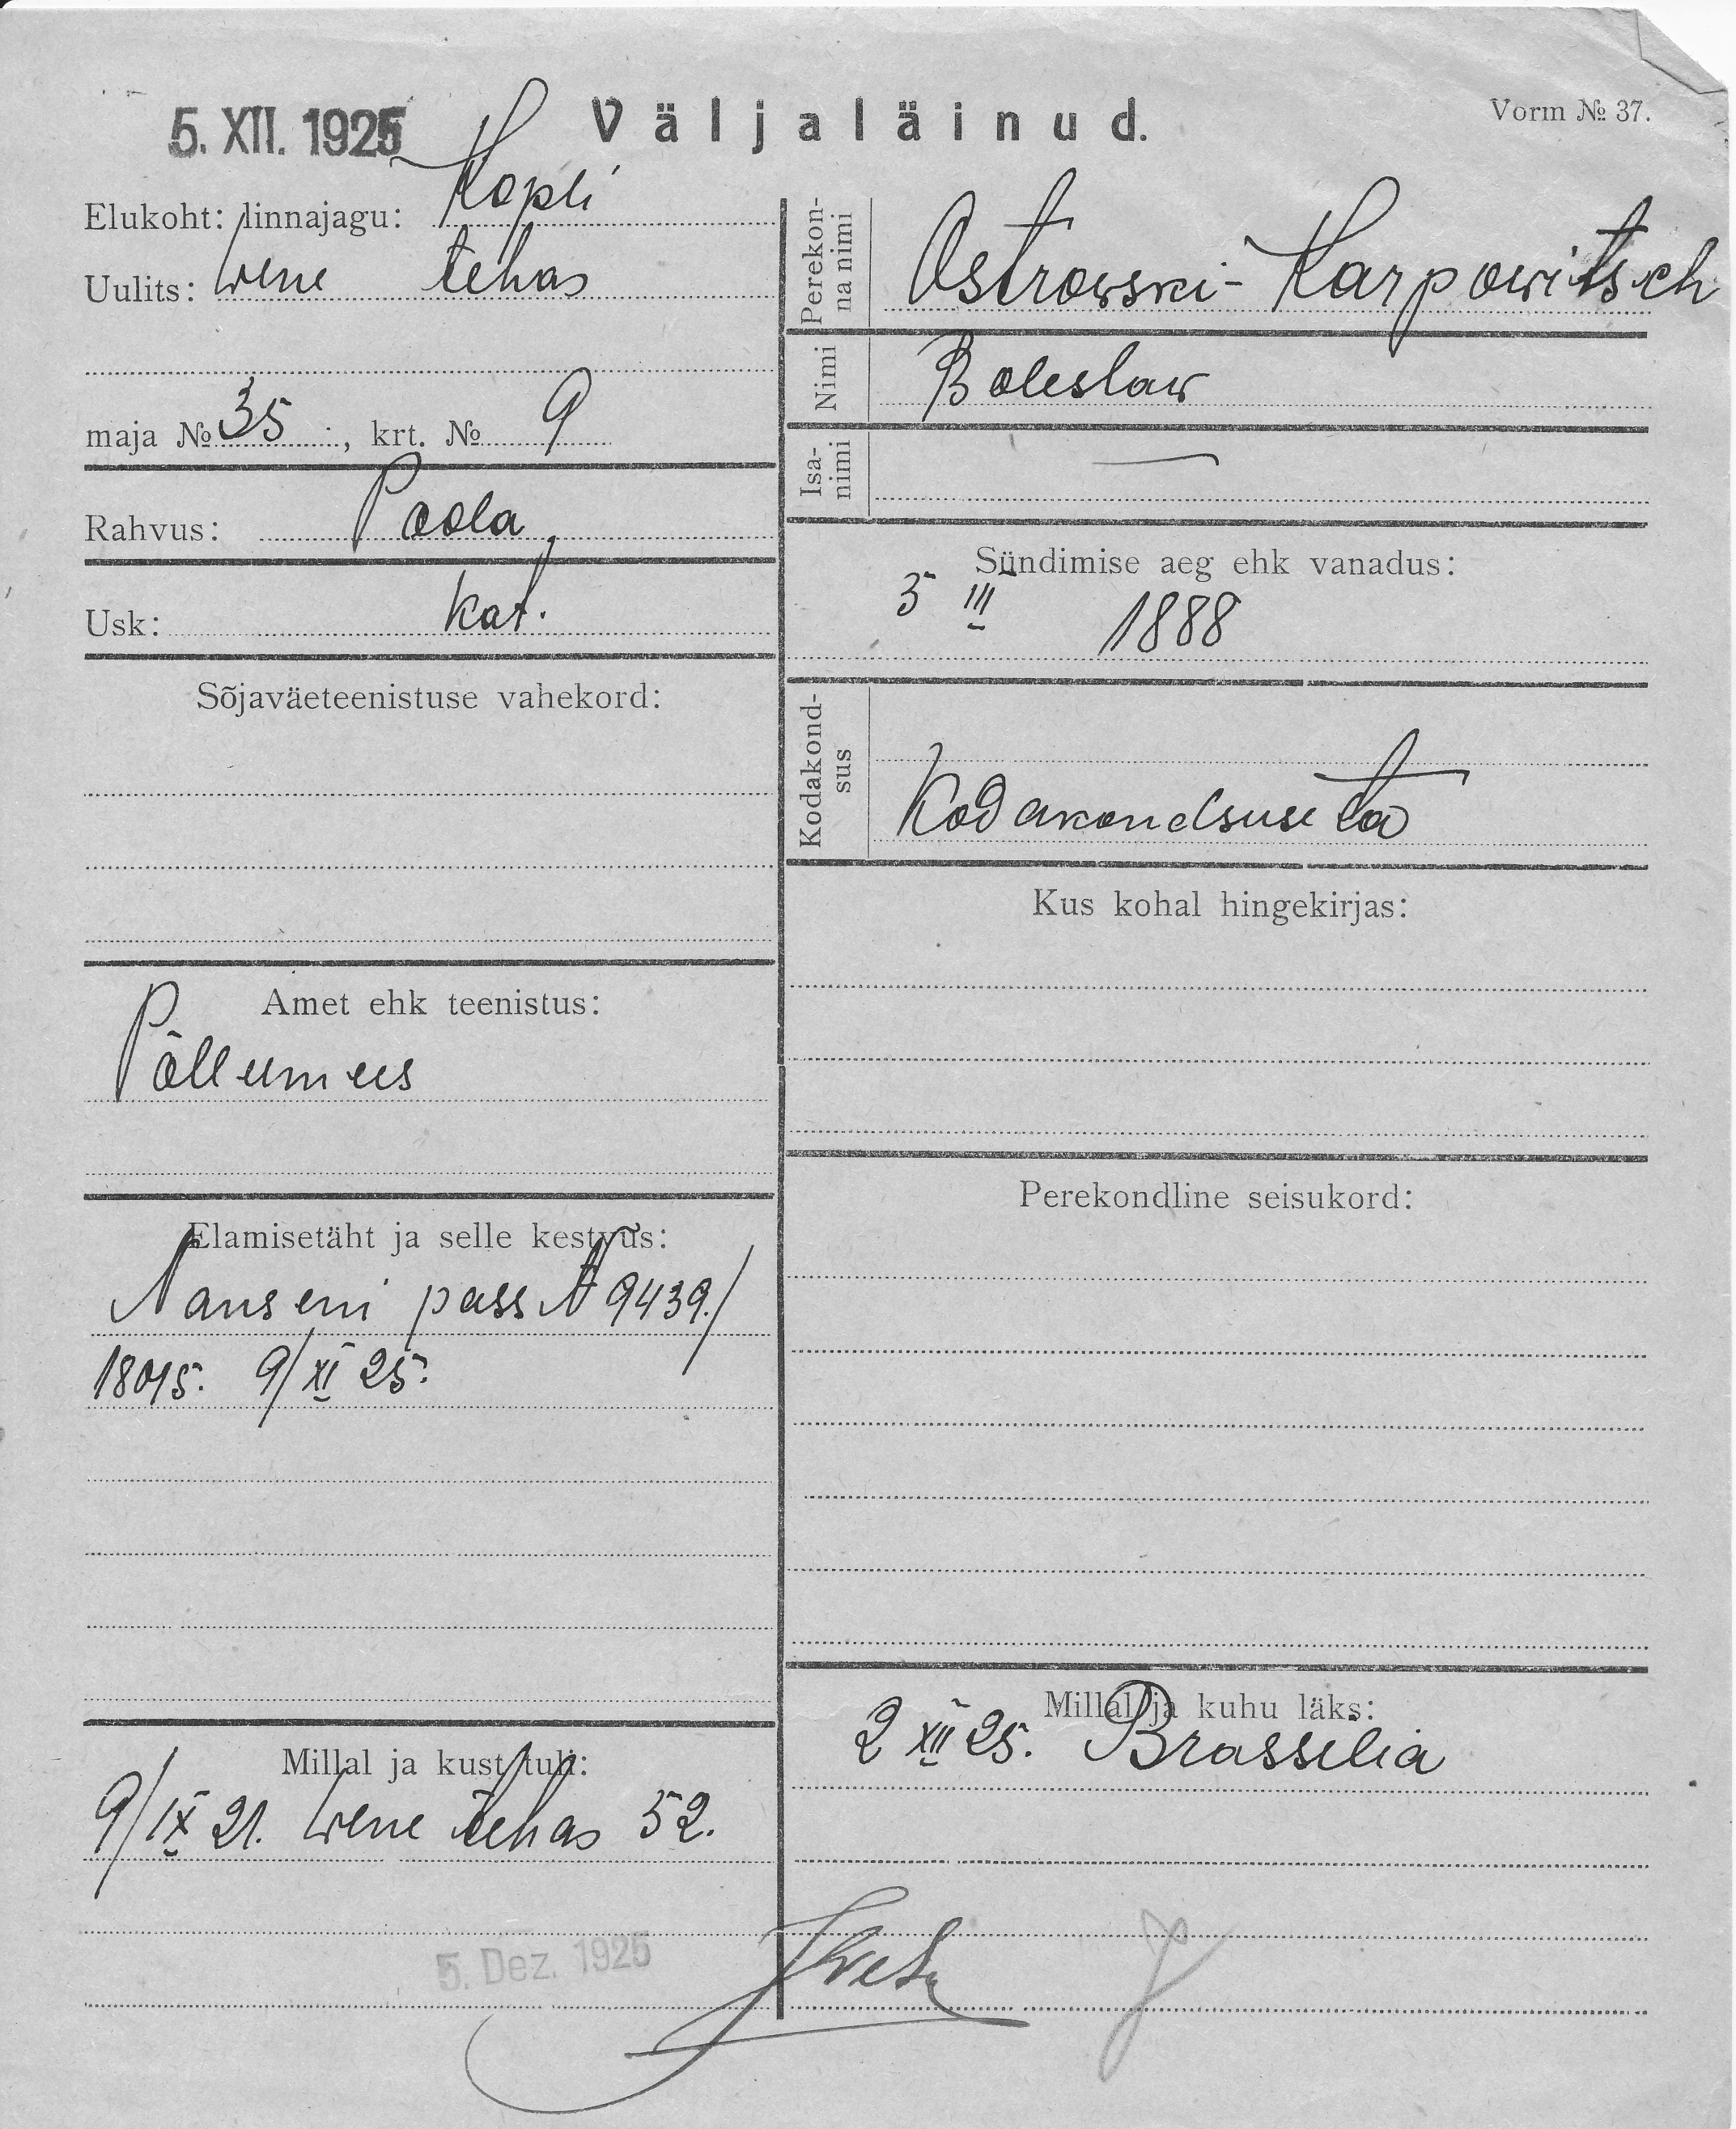 5. XII. 1925
Väljaläinud.
Vorm № 37.
Elukoht: linnajagu: Kopli
Uulits: Wene tehas
maja № 35, krt. № 9
Rahvus: Poola
Usk: kat.
Sõjaväeteenistuse vahekord:
Amet ehk teenistus:
Põllumees
Elamisetäht ja selle kestvus:
Nanseni pass N 9439./
18015. 9/XI 25.
Millal ja kust tuli:
9/IX 21. Wene tehas 52.
5. Dez. 1925
Perekon-
na nimi
Ostrowski-Karpowitsch
Nimi
Boleslaw
Isa-
nimi
—
Sündimise aeg ehk vanadus:
5 III 1888
Kodakond-
sus
Kodakondsuseta
Kus kohal hingekirjas:
Perekondline seisukord:
Millal ja kuhu läks:
2 XII 25. Brassilia